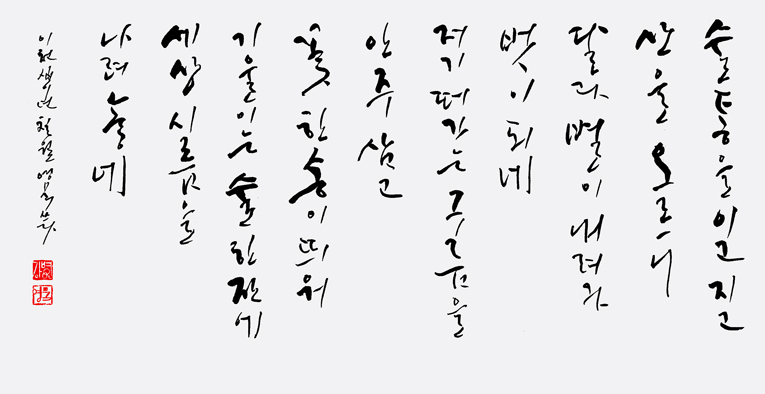 술통을 이고 지고
산을 오르니
달과 별이 내려와
벗이 되네
저기 떠가는 구름을
안주 삼고
꽃 한 송이 띄워
기울이는 술 한잔에
세상 시름을
나려놓네
이천십년 칠월